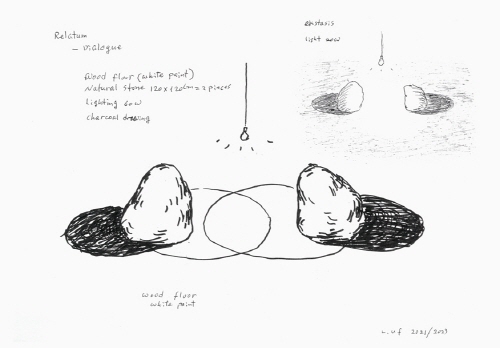 Relatum
– Dialogue
Wood floor (white paint)
Natural stone 120 x 120cm = 2 pieces
Lighting 60W
charcoal drawing
light 60W
wood floor
white paint
L.Uf 2021/2023